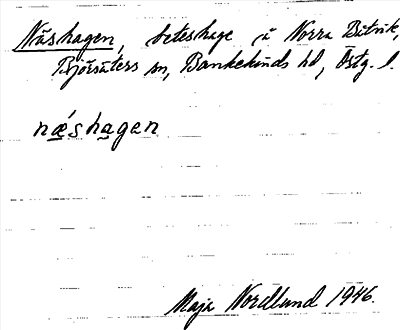 Näshagen, beteshage å Norra Båtvik,
Björsäters sn, Bankekinds hd, Östg. l.
næ´shagen
Maja Nordlund 1946.